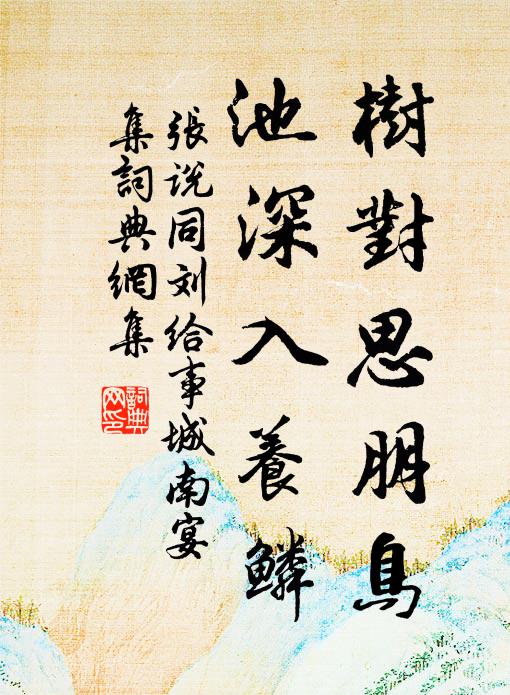 樹對思朋鳥
池深入養鱗
張说同刘给事城南宴
集詞典網集
詞典网印